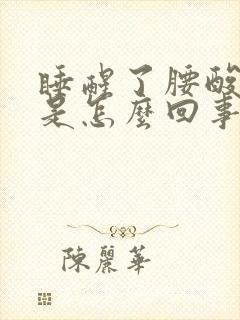 睡醒了腰酸
是怎麼回事
陳麗華